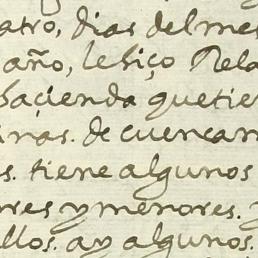 atro, dias del mes
año, le hiço Rela
haçienda que tie
inas. de cuencam
s. tiene algunos
ores y menores. y
llos. ay algunos.